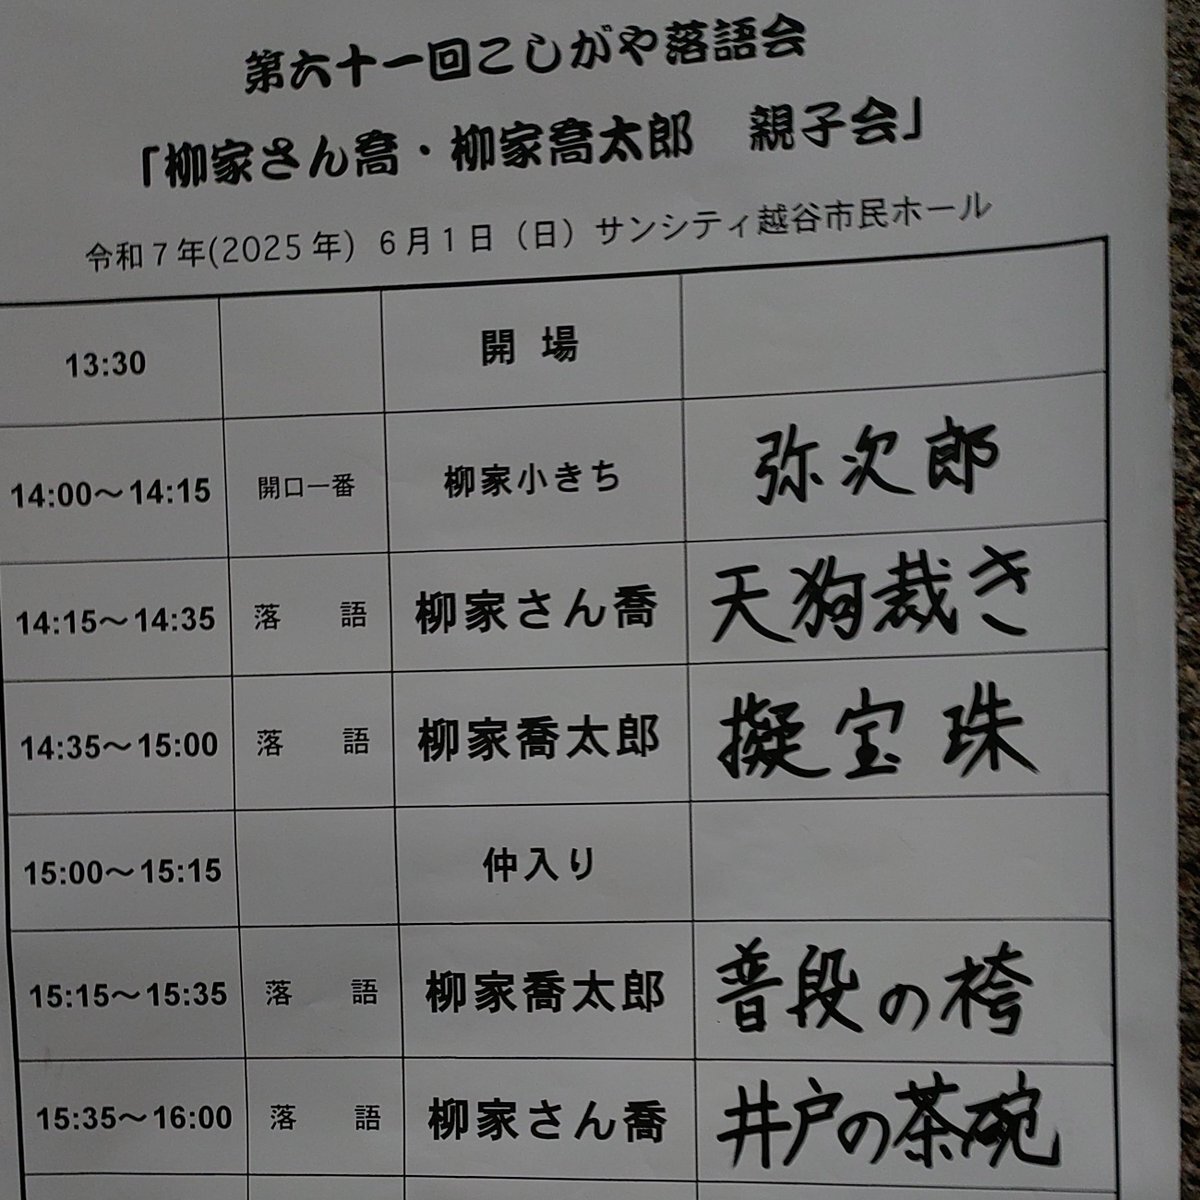 第六十一回こしがや落語会
「柳家さん喬・柳家喬太郎　親子会」
令和７年(2025年) ６月１日（日）サンシティ越谷市民ホール
13:30 開場
14:00～14:15 開口一番 柳家小きち 弥次郎
14:15～14:35 落語 柳家さん喬 天狗裁き
14:35～15:00 落語 柳家喬太郎 擬宝珠
15:00～15:15 仲入り
15:15～15:35 落語 柳家喬太郎 普段の袴
15:35～16:00 落語 柳家さん喬 井戸の茶碗